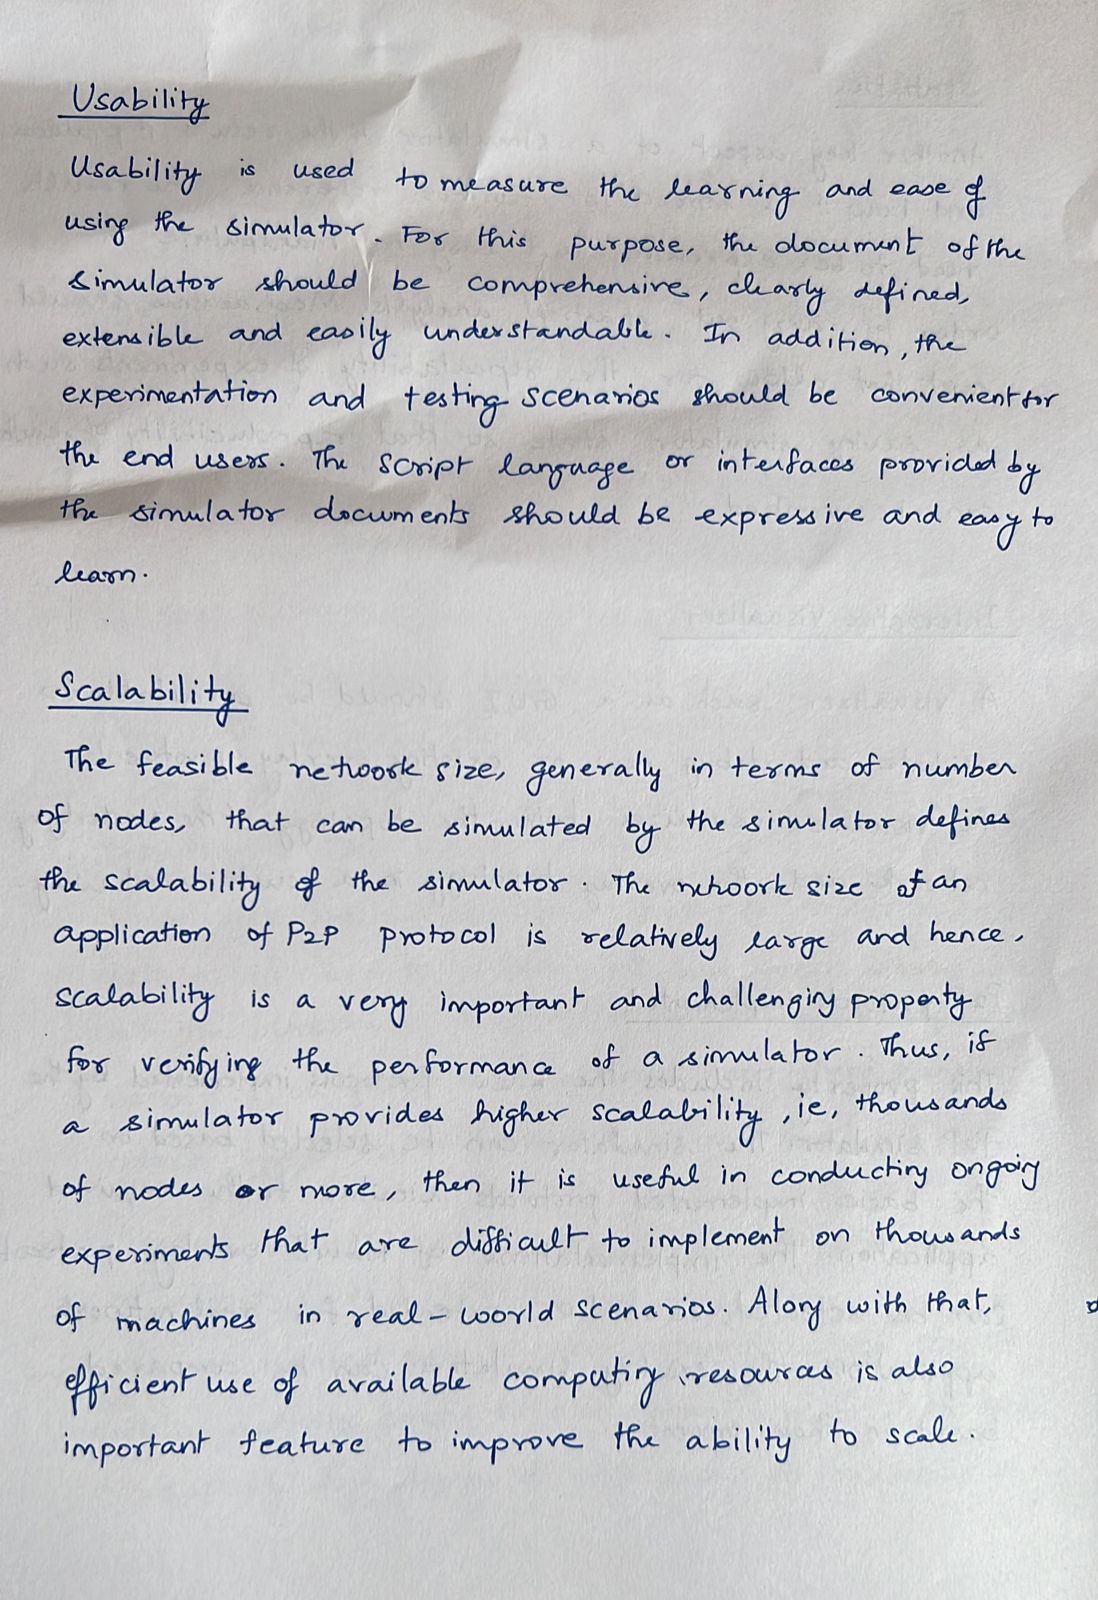 Usability
Usability is used to measure the learning and ease of
using the simulator. For this purpose, the document of the
simulator should be comprehensive, clearly defined,
extensible and easily understandable. In addition, the
experimentation and testing scenarios should be convenient for
the end users. The script language or interfaces provided by
the simulator documents should be expressive and easy to
learn.
Scalability
The feasible network size, generally in terms of number
of nodes, that can be simulated by the simulator defines
the scalability of the simulator. The network size of an
application of P2P protocol is relatively large and hence,
scalability is a very important and challenging property
for verifying the performance of a simulator. Thus, if
a simulator provides higher scalability, ie, thousands
of nodes or more, then it is useful in conducting ongoing
experiments that are difficult to implement on thousands
of machines in real-world scenarios. Along with that,
efficient use of available computing resources is also
important feature to improve the ability to scale.